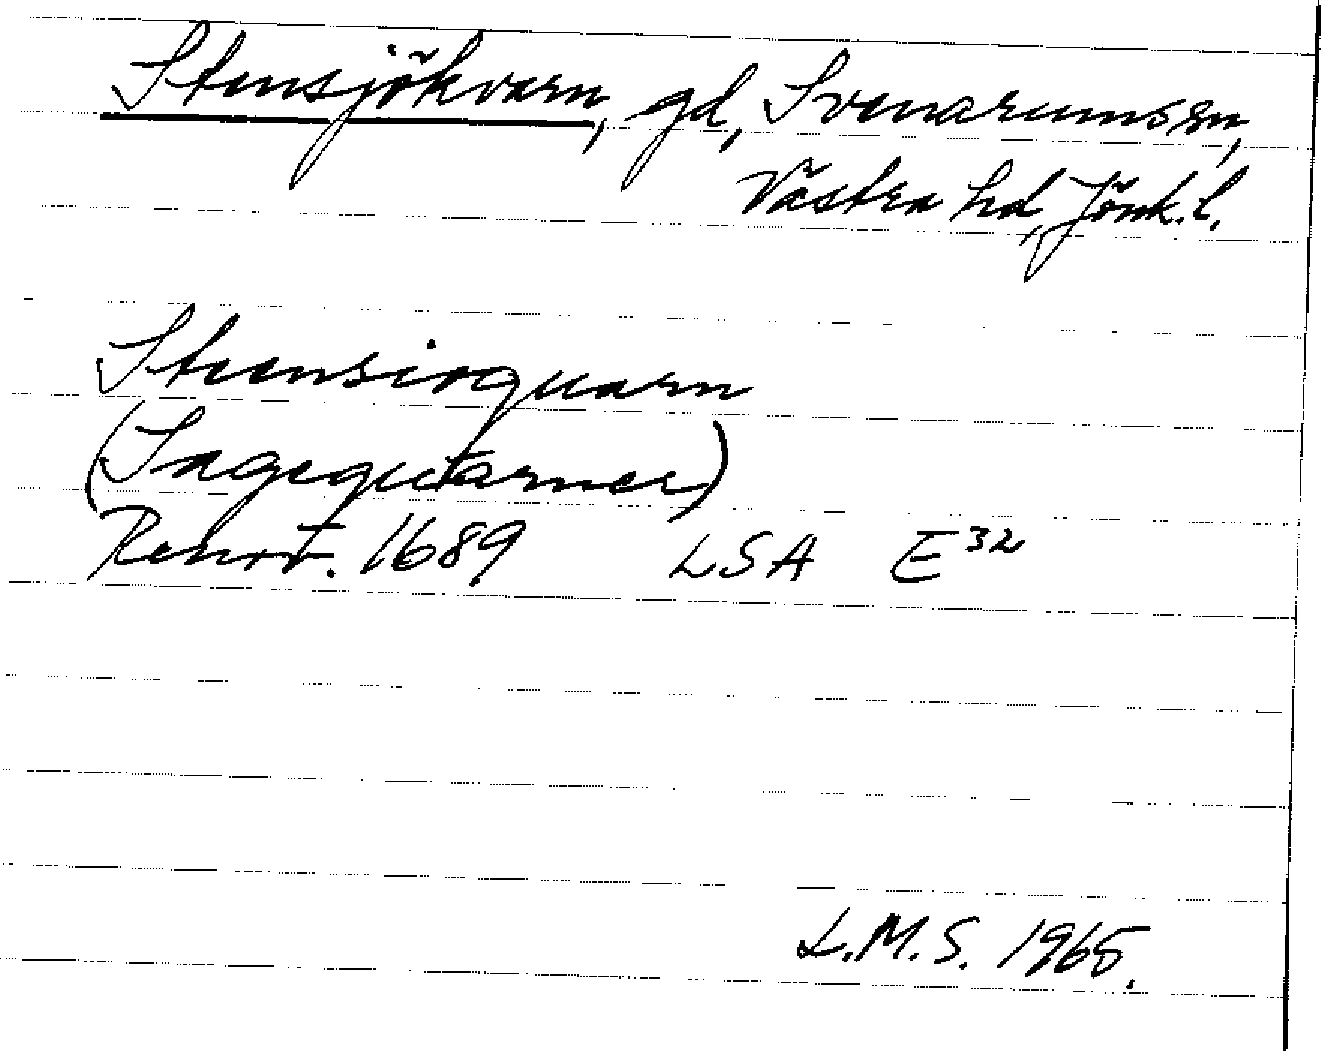 Stensjökvarn, gd, Svenarums sn,
Västra hd, Jönk. l.
Steensiöquarn
(Sageqvarner)
Renov. 1689 LSA E32
L.M.S. 1965.